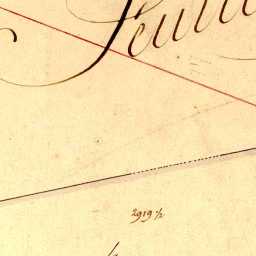 Feuill
2919 ½